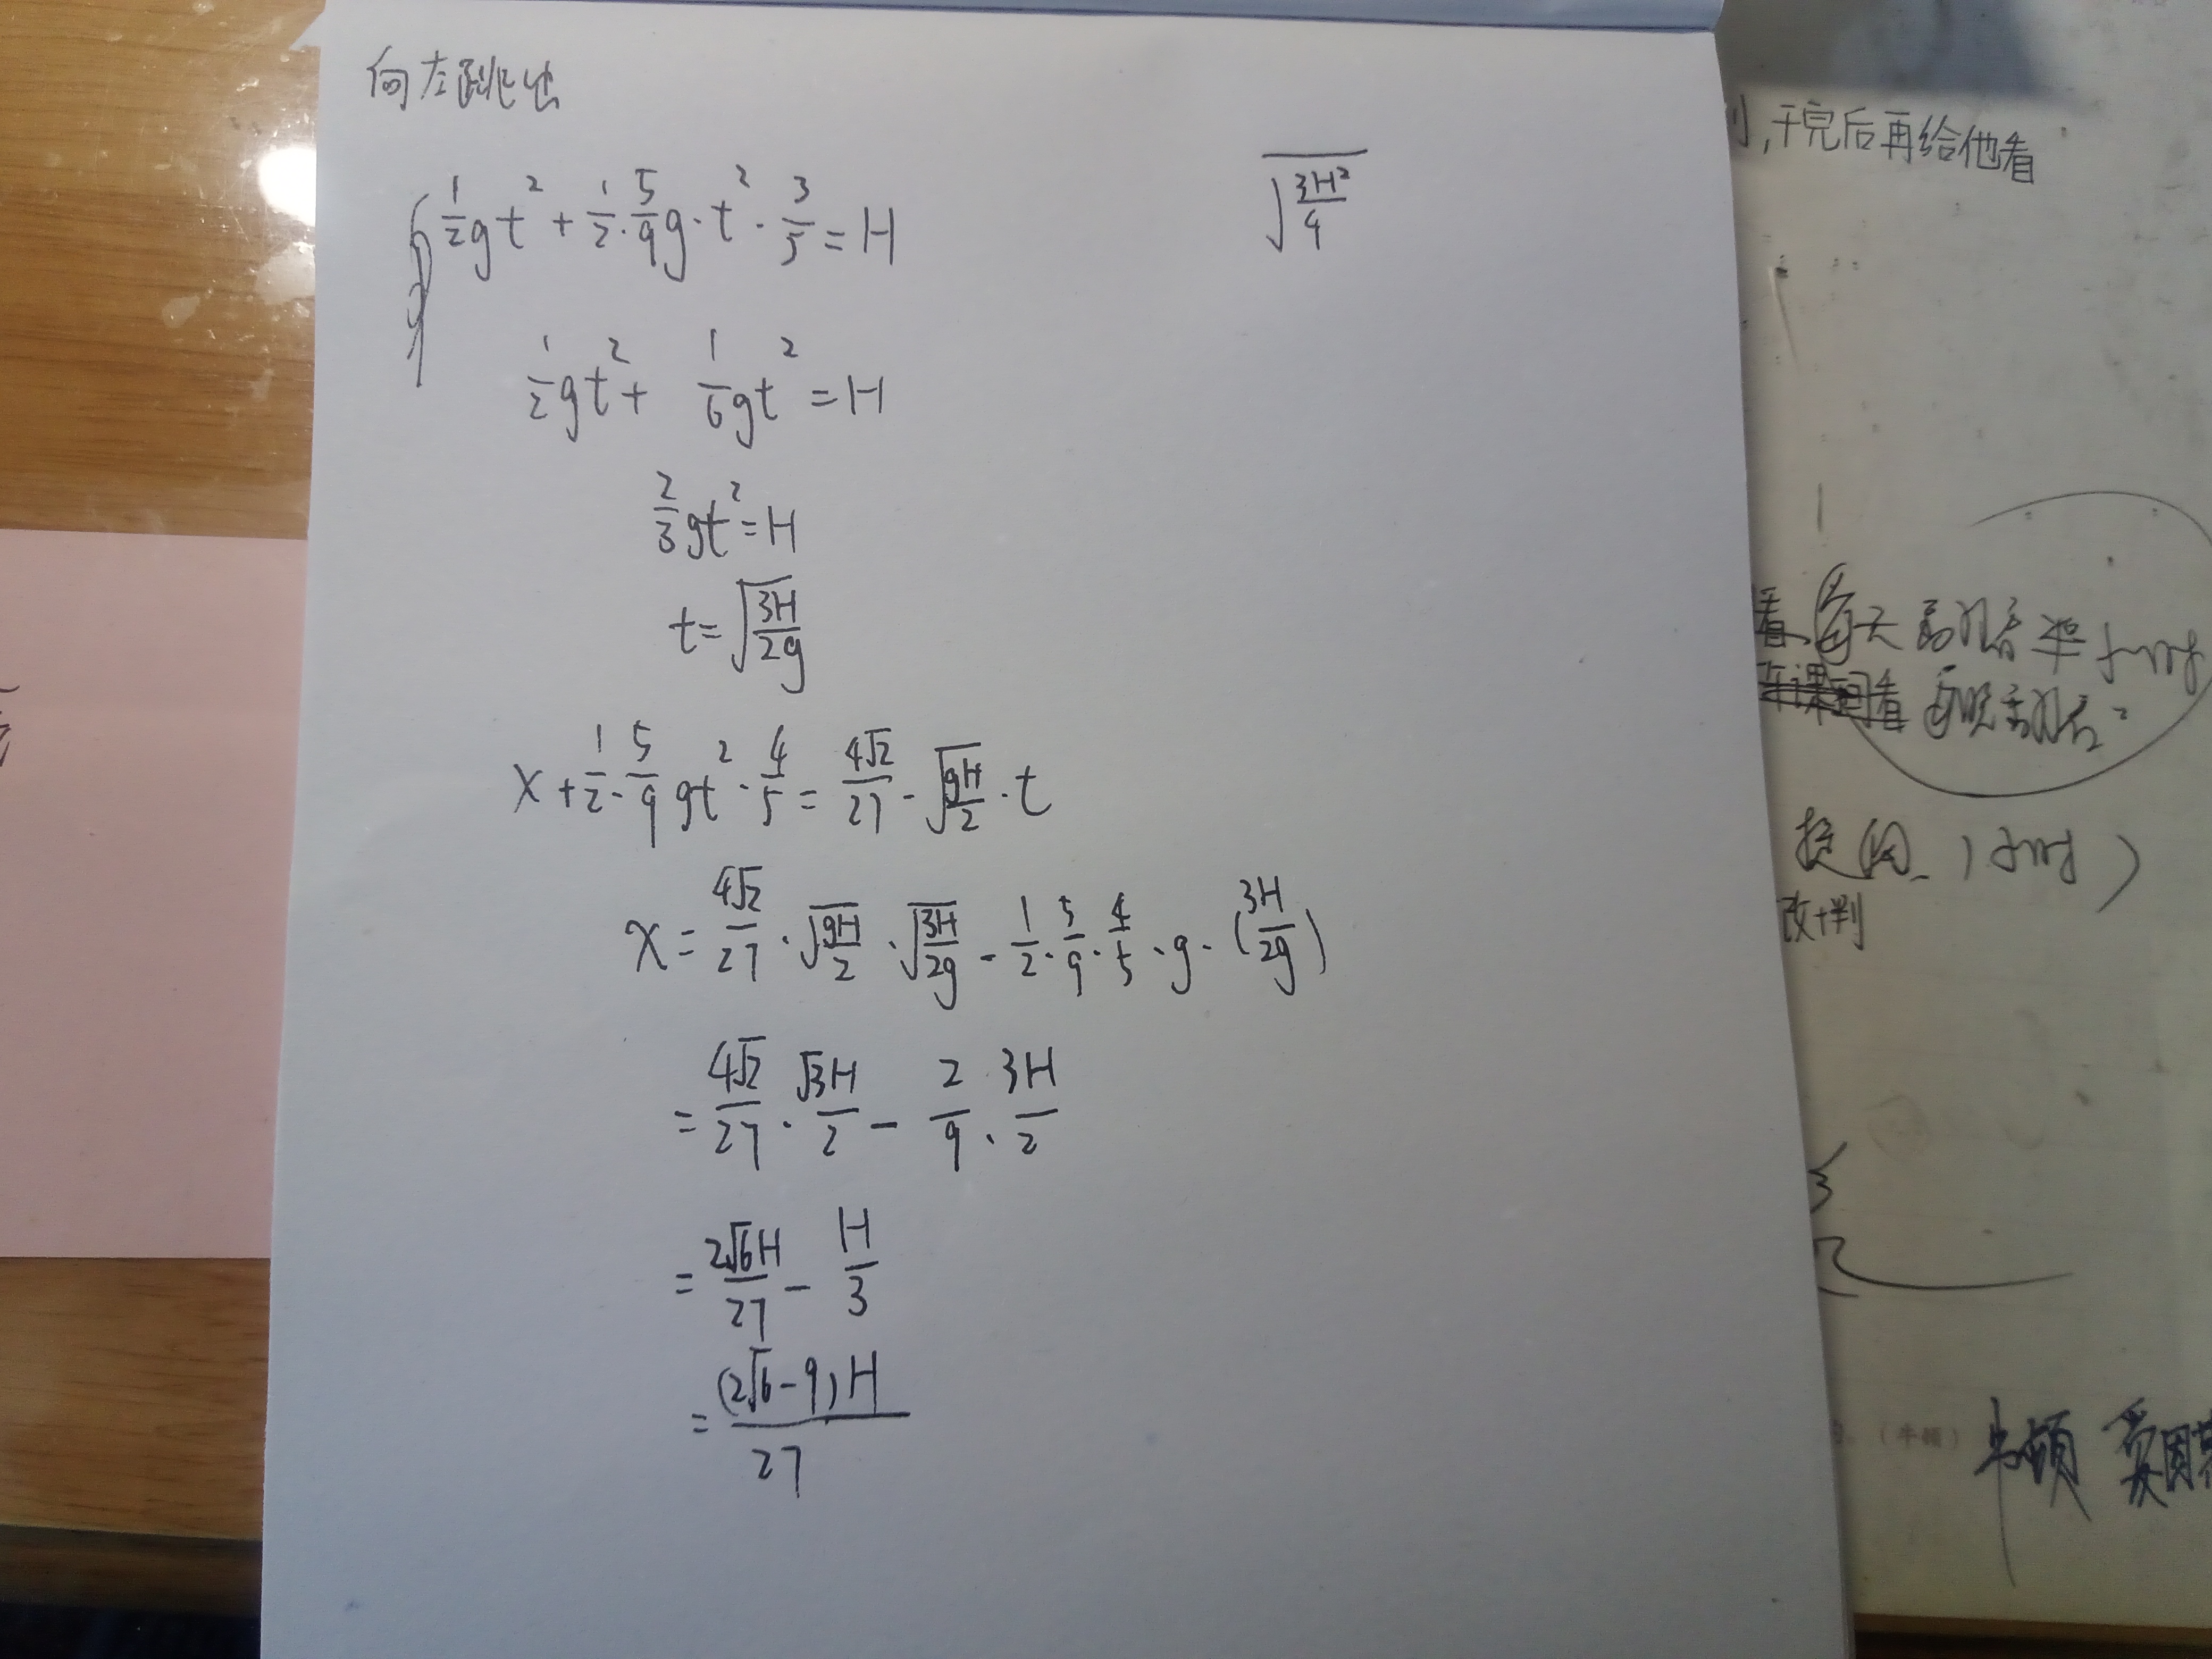 向左跳出
½gt² + ½·5/9g·t²·3/5 = H
√(3H²/4)
½gt² + 1/6gt² = H
2/3gt² = H
t = √(3H/2g)
x + ½·5/9gt²·4/5 = 4√2/27·√(gH/2)·t
x = 4√2/27·√(gH/2)·√(3H/2g) - ½·5/9·4/5·g·(3H/2g)
= 4√2/27·√3H/2 - 2/9·3H/2
= 2√6H/27 - H/3
= (2√6-9)H/27
,干完后再给他看
看,每天
课间看
改+判
(牛顿) 牛顿 爱因